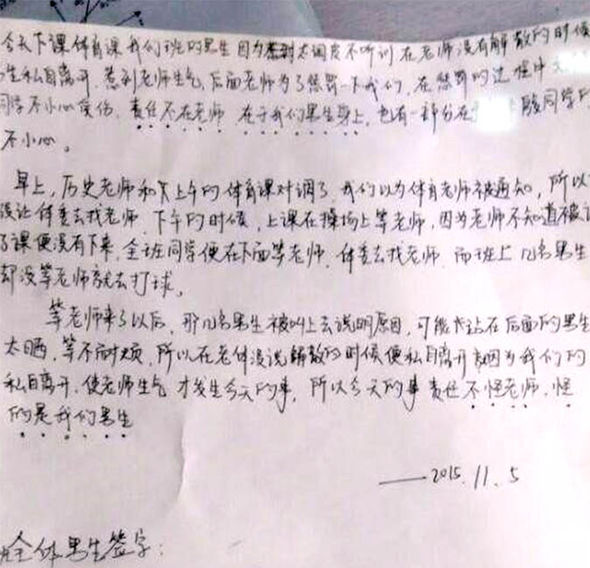 今天下课体育课我们班的男生因为态度不听训在老师没有解散的时候
生私自离开,惹到老师生气,后面老师为了惩罚一下我们,在惩罚的过程中
同学不小心受伤,责任不在老师,在于我们男生身上,也有一部分在 同学的
不小心。
早上,历史老师和下午的体育课对调了,我们以为体育老师被通知,所以
没让体委去找老师,下午的时候,上课在操场上等老师,因为老师不知道被调
了课便没有下来,全班同学便在下面等老师,体委去找老师,而班上几名男生
却没等老师就去打球。
等老师来了以后,那几名男生被叫上去说明原因,可能站在后面的男生
太晒,等不耐烦,所以在老师没说解散的时候便私自离开,因为我们的
私自离开,使老师生气,才发生今天的事,所以今天的事责任不怪老师,怪
的是我们男生
——2015.11.5
全体男生签字: